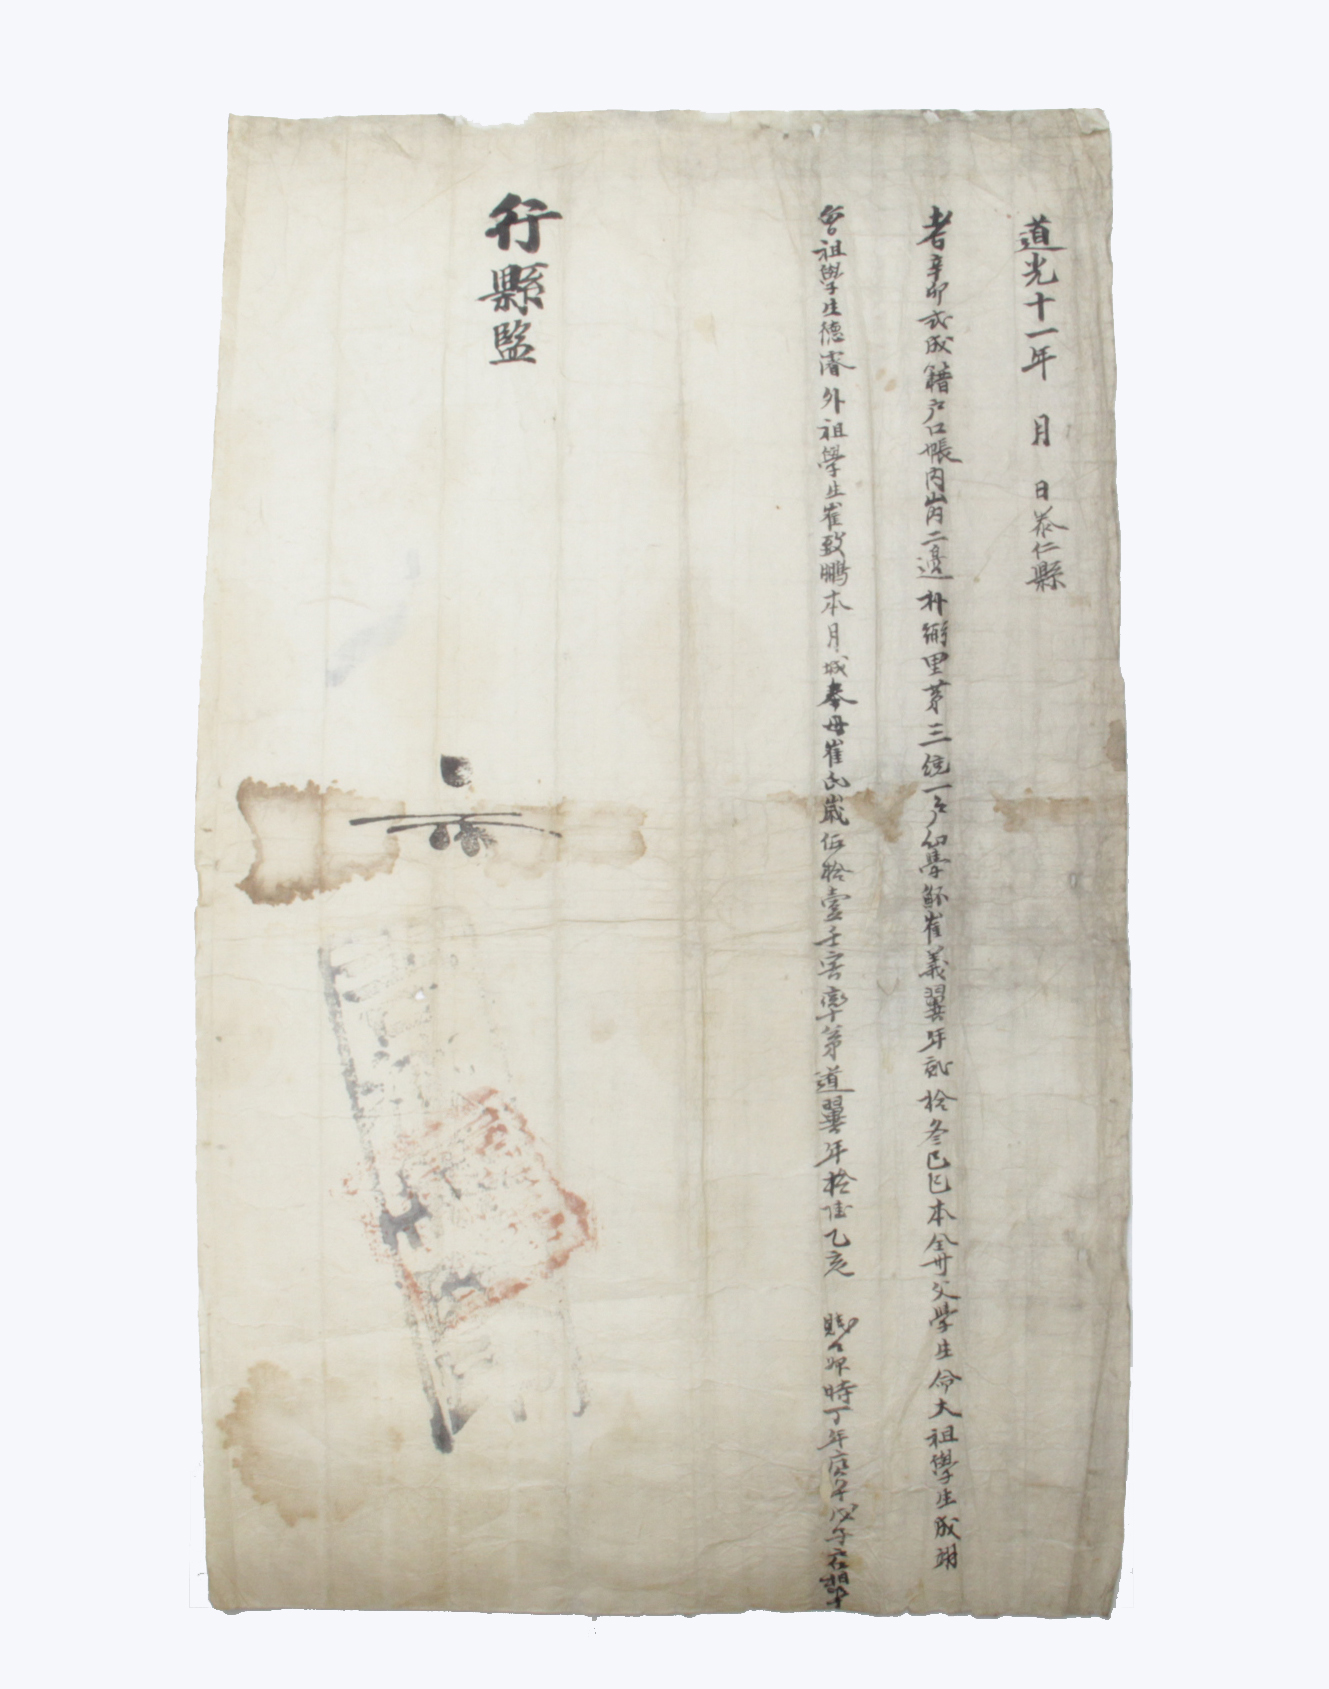 道光十一年 月 日泰仁縣
者辛卯式成籍戶口帳內山內二邊朴鄕里第三統一戶幼學 崔義翼年貳拾參己巳本全州父學生命大祖學生成翊
曾祖學生德濬外祖學生崔致鵬本月城奉母崔氏歲伍拾壹 率弟道翼年拾 乙亥 賤 婢時丁年 戊午
行縣監